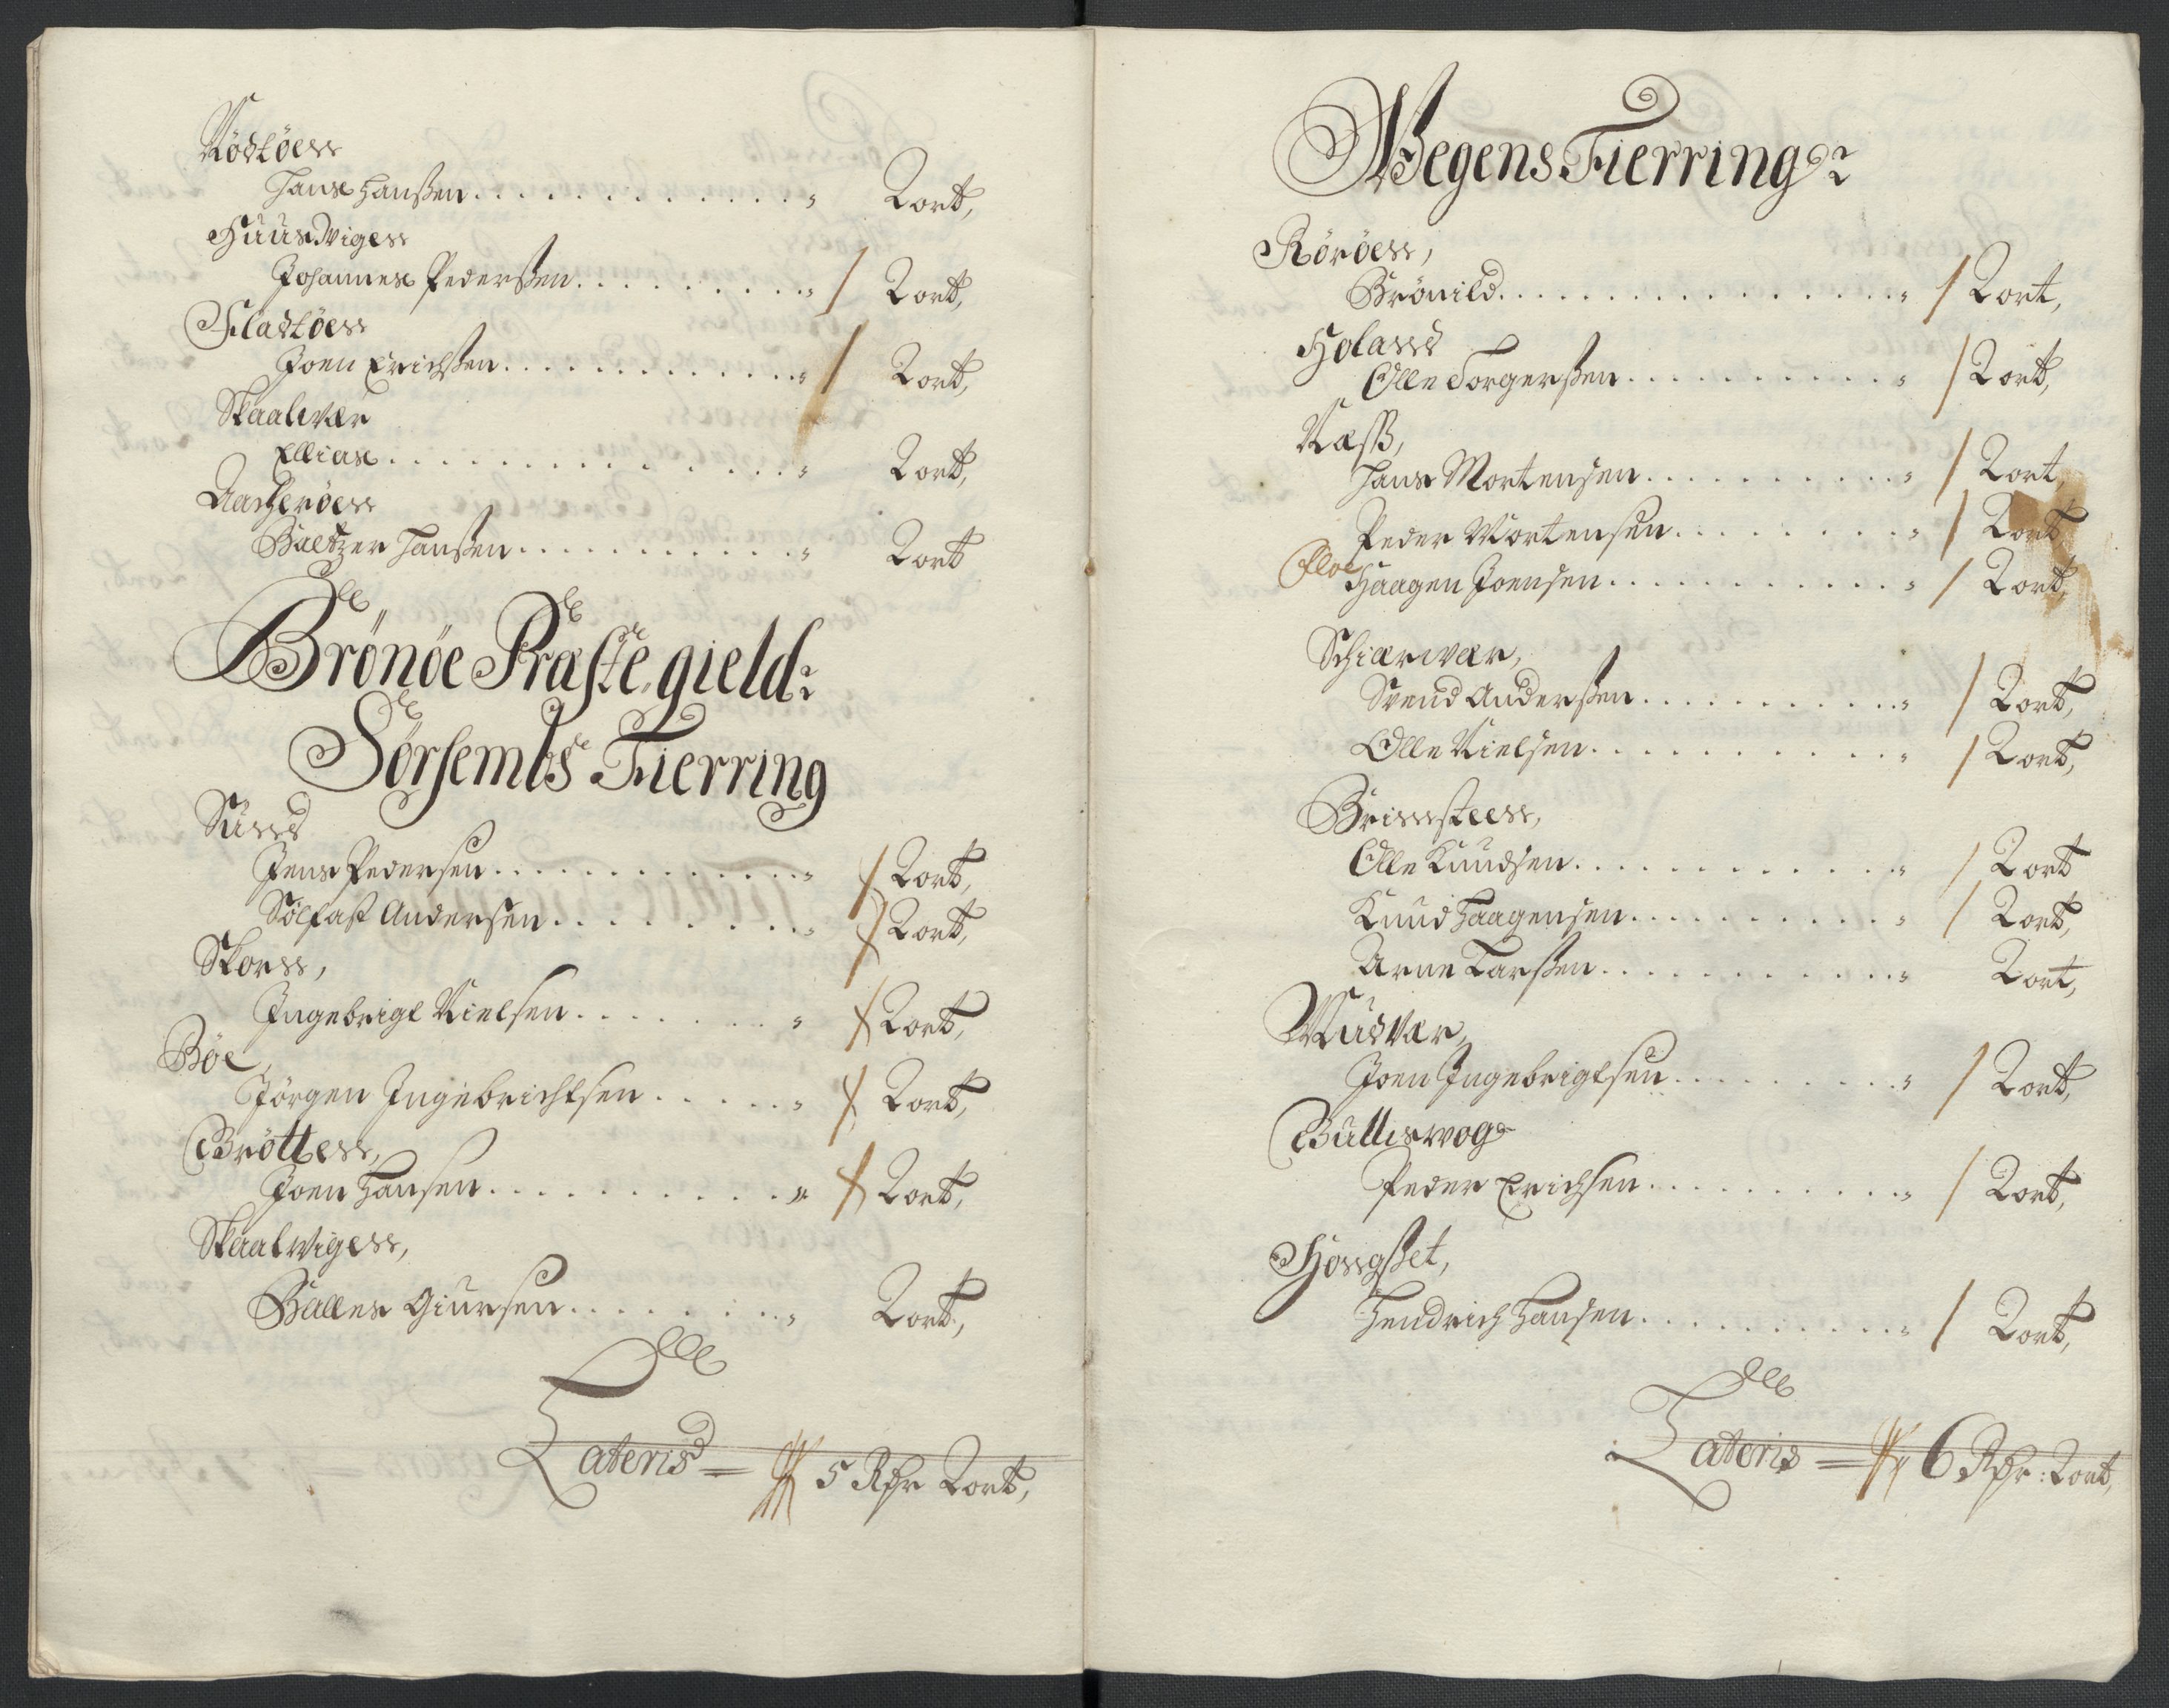 Rödtöen
Hans Hanßen . . . . . . . . . . . . . „ 2 ort,
Huusvigen
Johannes Pederßen . . . . . . . . . „ / 2 ort,
Fladtöen
Joen Erichßen . . . . . . . . . . . . „ / 2 ort,
Skaalvær
Ellias . . . . . . . . . . . . . . . „ 2 ort,
Aacheröen
Baltzer Hanßen . . . . . . . . . . . „ 2 ort
Brönöe Præste gield:
Sörsembs Fierring
Sund
Jens Pedersen . . . . . . . . . . . . „ / 2 ort,
Sölfast Andersen . . . . . . . . . „ / 2 ort,
Skonn,
Ingebrigt Nielsen . . . . . . . „ / 2 ort,
Böe,
Jörgen Ingebrichtsen . . . . . „ / 2 ort,
Brötten,
Joen Hansen . . . . . . . . . . . „ / 2 ort,
Skaalvigen,
Balles Giursen . . . . . . . . „ 2 ort,
Lateris = 5 Rdr 2 ort,
Wegens Fierring:
Röröen,
Brönild . . . . . . . . . . . . . . . . „ / 2 ort,
Holand
Olle Torgerßen . . . . . . . . . . „ / 2 ort,
Næss,
Hans Mortensen . . . . . . . . . . „ / 2 ort,
Peder Mortensen . . . . . . . . . „ / 2 ort
Floe Haagen Joensen . . . . . . . . . . . „ / 2 ort,
Schiærvær,
Svend Anderßen . . . . . . . . . . . „ / 2 ort,
Olle Nielsen . . . . . . . . . . . . „ / 2 ort,
Brinnsteen,
Olle Knudsen . . . . . . . . . . . . . „ / 2 ort
Knud Haagensen . . . . . . . . . . „ / 2 ort,
Arne Larßen . . . . . . . . . . . . „ 2 ort,
Muusvær,
Joen Ingebrigtsen . . . . . . . . . „ / 2 ort,
Bullisvog
Peder Erichsen . . . . . . . . . . „ / 2 ort,
Hongßet,
Hendrich Hansen . . . . . . . . . . „ / 2 ort,
Lateris = 6 Rdr: 2 ort,